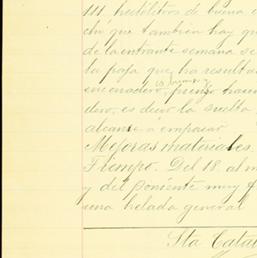 111 hectólitros de buena
chí que también hay qu
de la entrante semana se
la paja que ha resulta
pienso hacer
dero, es decir la suelta
alcance á empacar
Mejoras materiales.
Tiempo. Del 18. al
y del poniente muy f
una helada general
Sta Catal